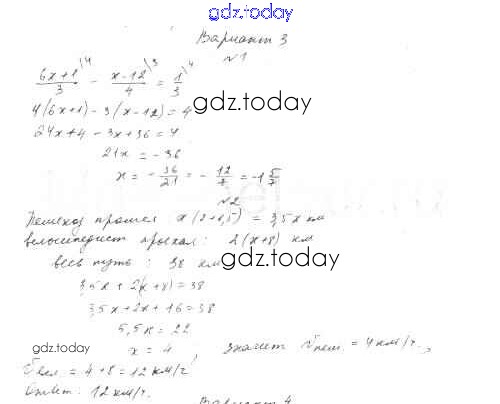 gdz.today
Вариант 3
№1
6x+1/3 \4 - x-12/4 \3 = 1/3 \4
gdz.today
4(6x+1) - 3(x-12) = 4
24x+4 - 3x+36 = 4
21x = -36
x = -36/21 = -12/7 = -1 5/7
№2
Пешеход прошел x(2+1,5) = 3,5x км
велосипедист проехал: 2(x+8) км
весь путь: 38 км
gdz.today
3,5x + 2(x+8) = 38
3,5x + 2x + 16 = 38
gdz.today
5,5x = 22
x = 4, значит Vпеш. = 4 км/ч,
Vвел = 4+8 = 12 км/ч
Ответ: 12 км/ч.
Вариант 4